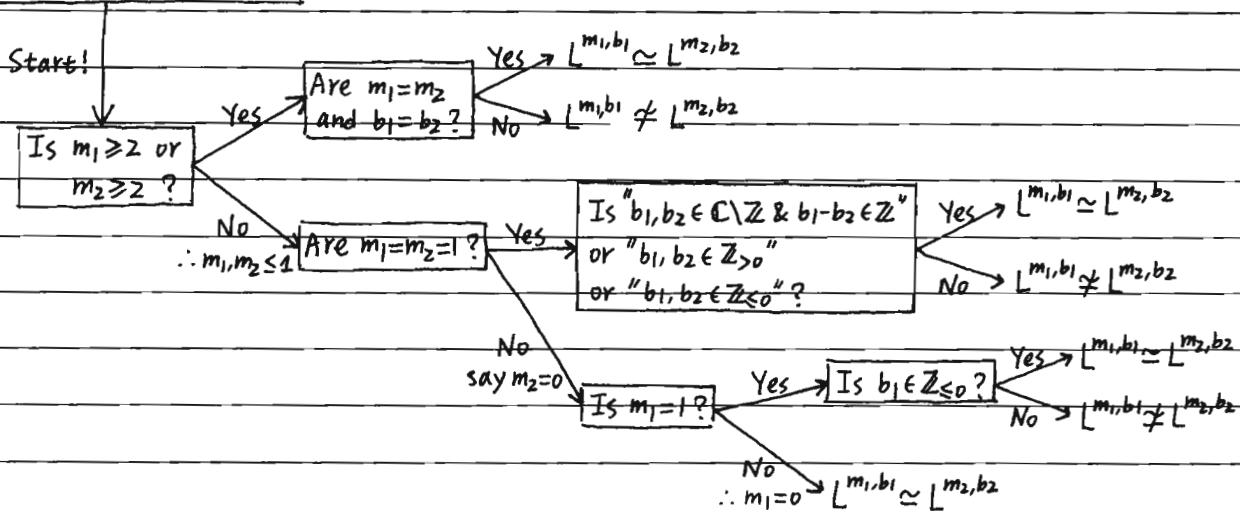 Start!
Is m₁⩾2 or
m₂⩾2 ?
Yes
Are m₁=m₂
and b₁=b₂ ?
Yes
L^{m₁,b₁} ≃ L^{m₂,b₂}
No
L^{m₁,b₁} ≄ L^{m₂,b₂}
No
∴ m₁,m₂≤1
Are m₁=m₂=1 ?
Yes
Is "b₁,b₂ ∈ ℂ\ℤ & b₁-b₂ ∈ ℤ"
or "b₁,b₂ ∈ ℤ_{>0}"
or "b₁,b₂ ∈ ℤ_{≤0}" ?
Yes
L^{m₁,b₁} ≃ L^{m₂,b₂}
No
L^{m₁,b₁} ≄ L^{m₂,b₂}
No
say m₂=0
Is m₁=1 ?
Yes
Is b₁ ∈ ℤ_{≤0} ?
Yes
L^{m₁,b₁} ≃ L^{m₂,b₂}
No
L^{m₁,b₁} ≄ L^{m₂,b₂}
No
∴ m₁=0
L^{m₁,b₁} ≃ L^{m₂,b₂}